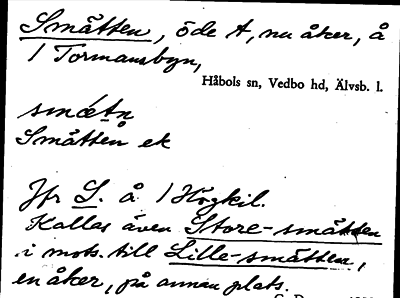 Småtten, öde t, nu åker, å
1 Tormansbyn,
Håbols sn, Vedbo hd, Älvsb. l.
smǽtn̥
Småtten ek
Jfr S. å 1 Högkil.
Kallas även Store-småtten
i mots. till Lille-småtten,
en åker, på annan plats.